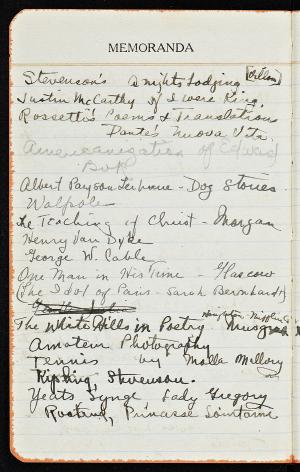 MEMORANDA
Stevenson's A nights Lodging [Villon]
Justin McCarthy If I were King.
Rossetti's Poems & Translations
Dante's Nuova Vita
Americanization of Edward
Bok
Albert Payson Terhune - Dog Stories
Walpole
The Teaching of Christ - Morgan
Henry Van Dyke
George W. Cable
One Man in His Time - Glascow
(The Idol of Paris - Sarah Bernhardt)
Houghton-Mifflin Co
The White Hills in Poetry Musgrove
Amateur Photography
Tennis by Molla Mallory
Kipling, Stevenson.
Yeats Synge Lady Gregory
Rostand, Princesse Lointaine